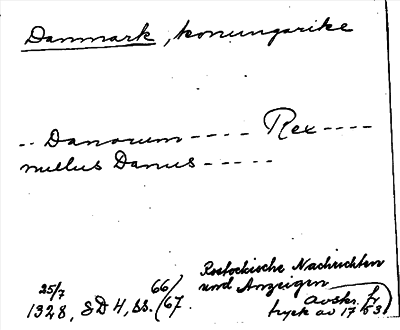 Danmark, konungarike
.. Danorum ---- Rex ----
nullus Danus -----
25/7 1328, SD 4, ss. 66/67.
Rostockische Nachrichten
und Anzeigen
avskr. fr.
tryck av 1753